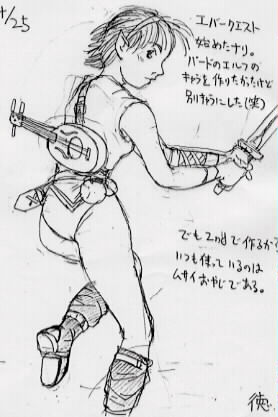 4/25
エバークエスト
始めたナリ。
バードのエルフの
キャラを作りたかったけど
別キャラにした(笑)
でも2ndで作るか?
いつも使っているのは
ムサイおやじである。
徳